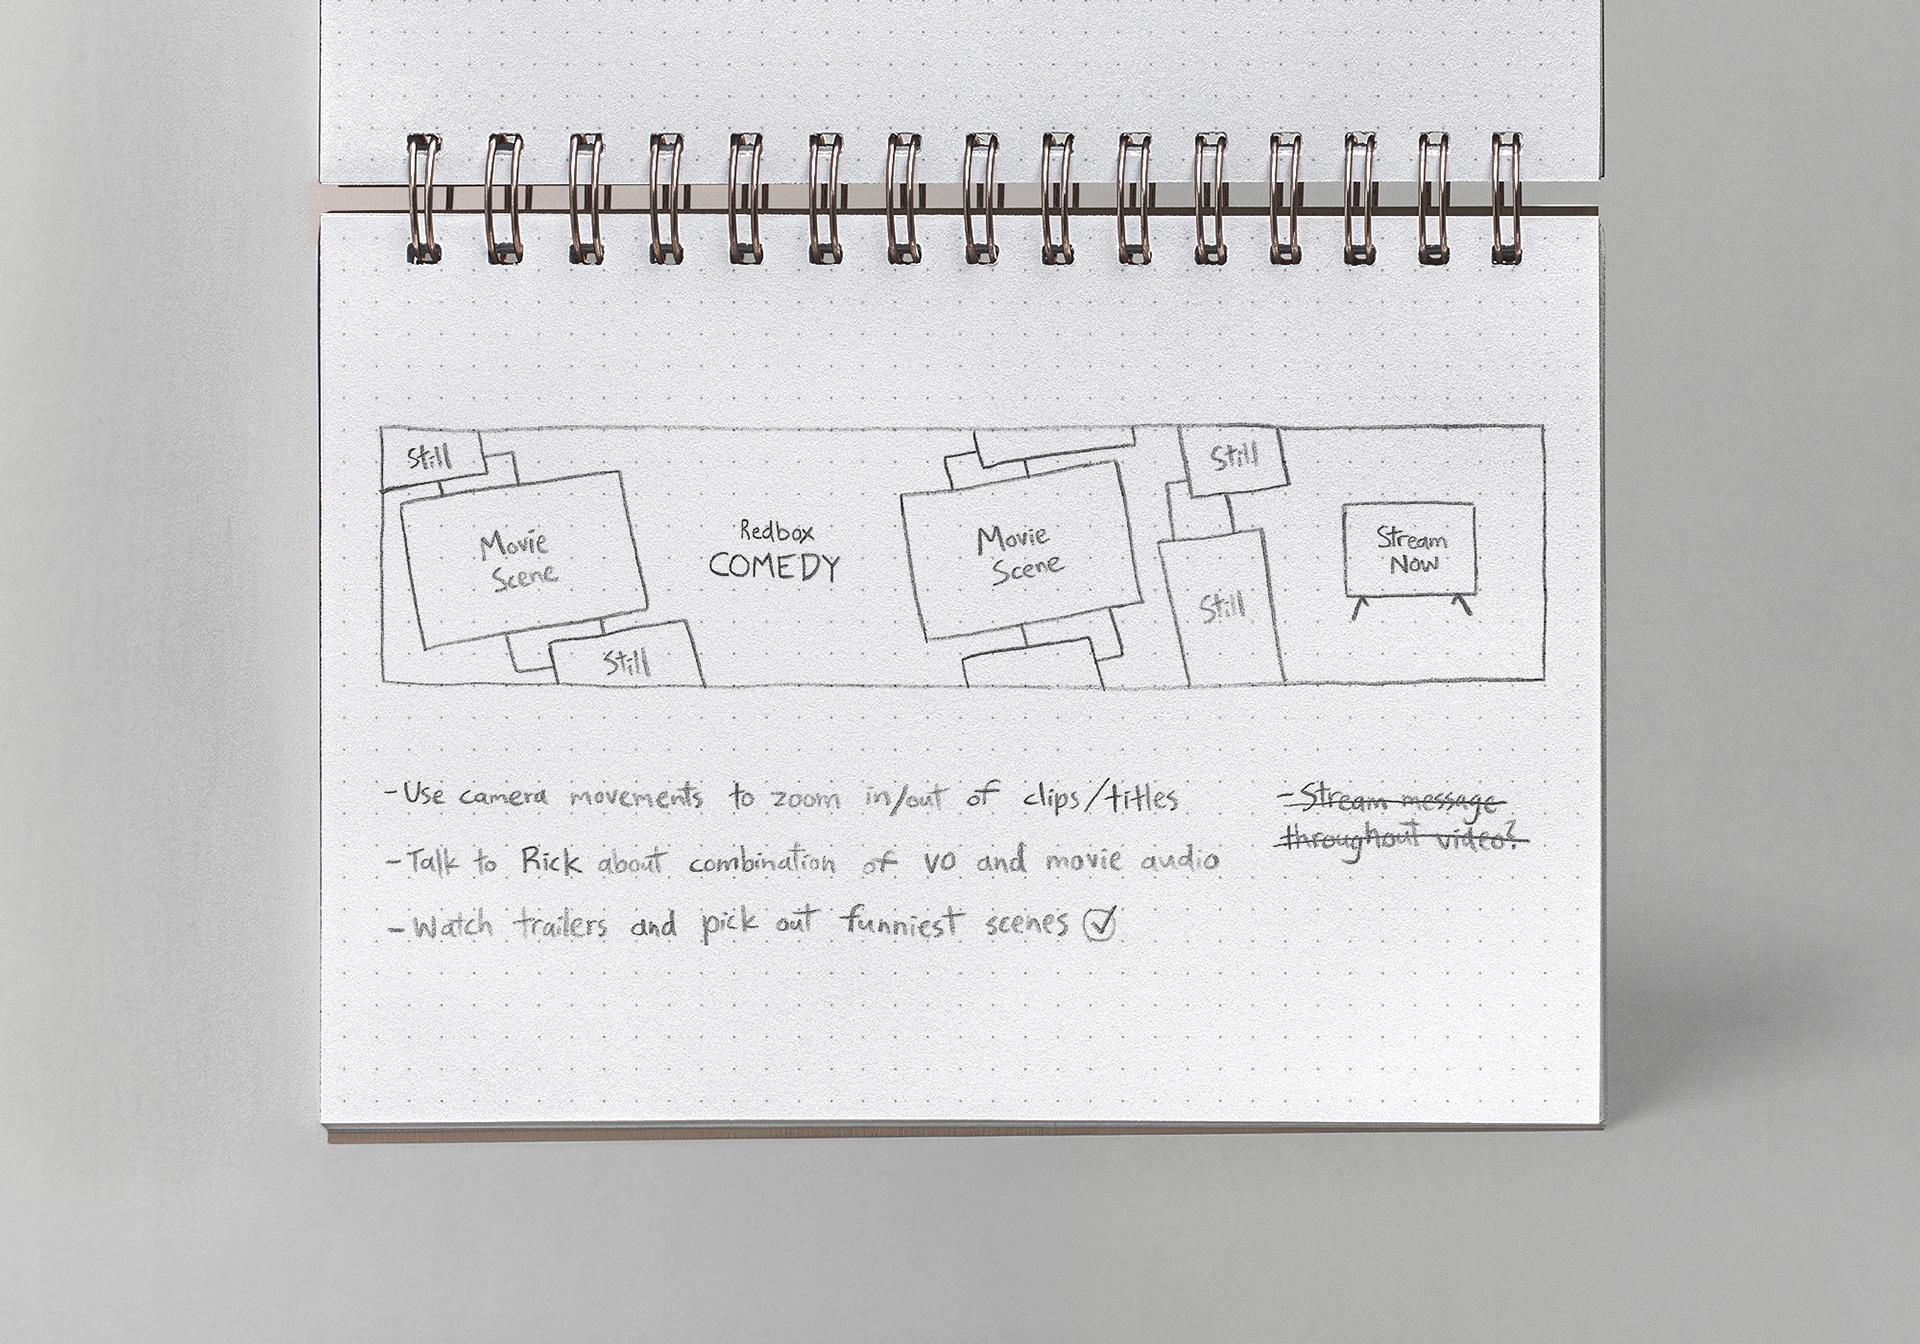 Still
Movie
Scene
Still
Redbox
COMEDY
Movie
Scene
Still
Still
Stream
Now
-Use camera movements to zoom in/out of clips/titles
-Talk to Rick about combination of VO and movie audio
-Watch trailers and pick out funniest scenes
-Stream message
throughout video?